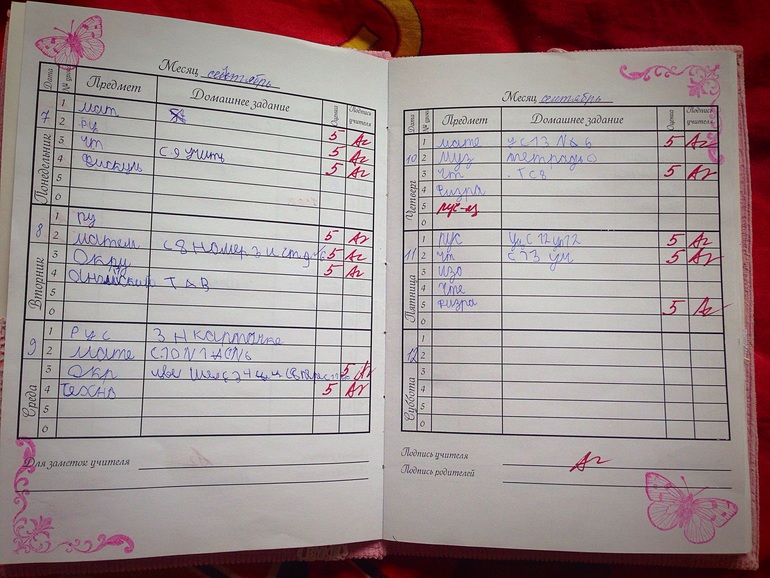 Месяц сентябрь
Дата № урока Предмет Домашнее задание Оценка Подпись учителя
Понедельник 7
1 мат
2 ру
3 чт 5 Аг
4 Физкуль с. 9 учить 5 Аг
5 5 Аг
0
Вторник 8
1 ру
2 матем с 8 номер 3 и 5 Аг
3 Окру 5 Аг
4 Английский Т А В 5 Аг
5
0
Среда 9
1 Рус 3 Н карточке
2 мате С10 N 1
3 окр 5 Аг
4 Техно 5 Аг
5
0
Для заметок учителя
Месяц сентябрь
Дата № урока Предмет Домашнее задание Оценка Подпись учителя
Четверг 10
1 мате с 13 N 6 5 Аг
2 Муз тетрадь
3 чт Т С 8 5 Аг
4 Физра
5 рус-яз
0
Пятница 11
1 рус у С 12 у 12 5 Аг
2 чт с 13 5 Аг
3 Изо
4 Чте
5 Физра 5 Аг
0
Суббота 12
1
2
3
4
5
0
Подпись учителя Аг
Подпись родителей